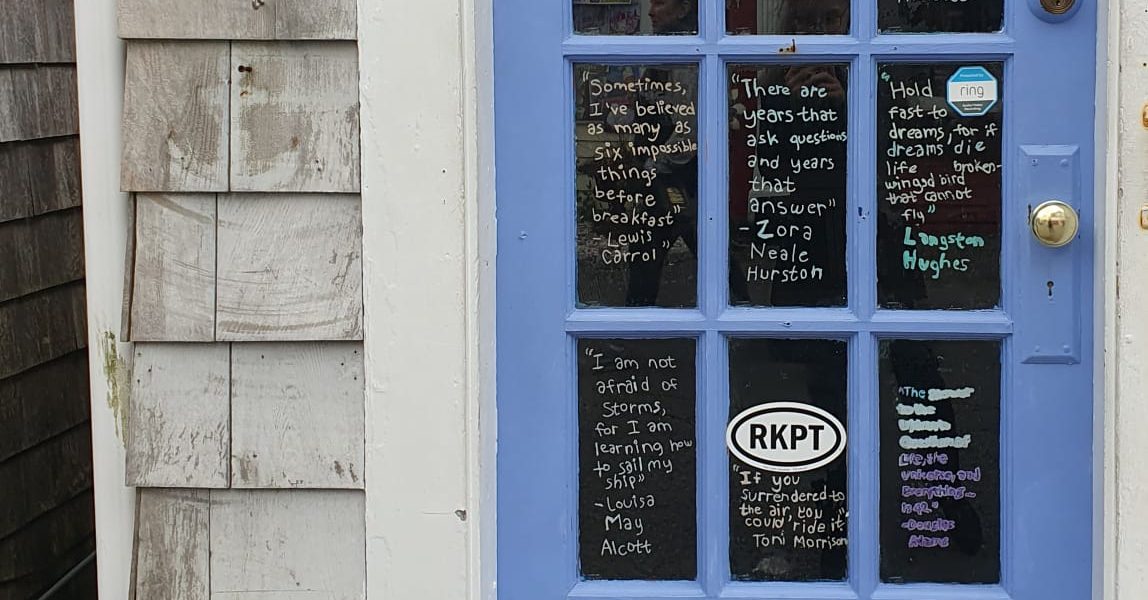 "Sometimes,
I've believed
as many as
six impossible
things
before
breakfast"
- Lewis
Carrol "
"There are
years that
ask questions
and years
that
answer"
- Zora
Neale
Hurston
"Hold
fast to
dreams, for if
dreams die
life broken-
winged bird
that cannot
fly"
Langston
Hughes
ring
"I am not
afraid of
Storms,
for I am
learning how
to sail my
ship"
- Louisa
May
Alcott
RKPT
"If you
surrendered to
the air, you
could ride it"
Toni Morrison
"The
to the
Ultimate
Question of
Life, the
universe, and
Everything -
is 42."
- Douglas
Adams